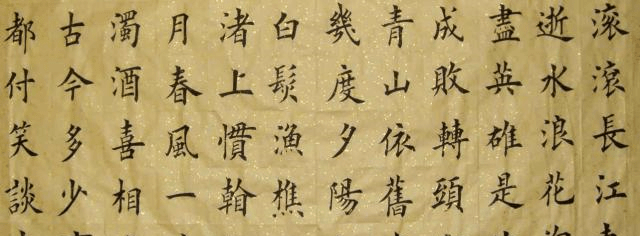 滚滾長江
逝水浪花
盡英雄是
成敗轉頭
青山依舊
幾度夕陽
白髮漁樵
渚上慣翰
月春風一
濁酒喜相
古今多少
都付笑談